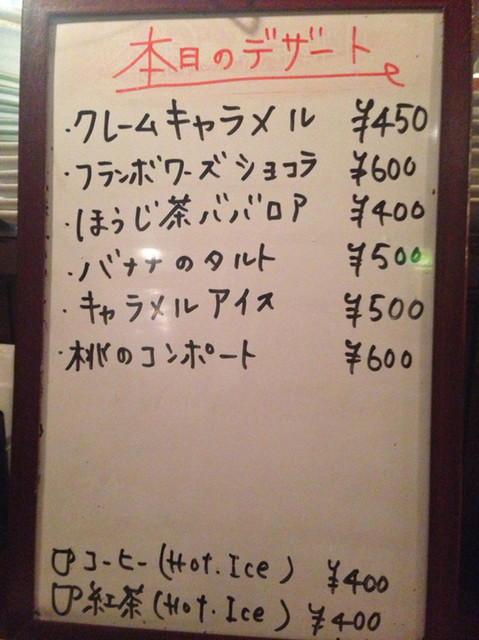 本日のデザート
・クレームキャラメル ¥450
・フランボワーズショコラ ¥600
・ほうじ茶ババロア ¥400
・バナナのタルト ¥500
・キャラメルアイス ¥500
・桃のコンポート ¥600
コーヒー(Hot.Ice) ¥400
紅茶(Hot.Ice) ¥400